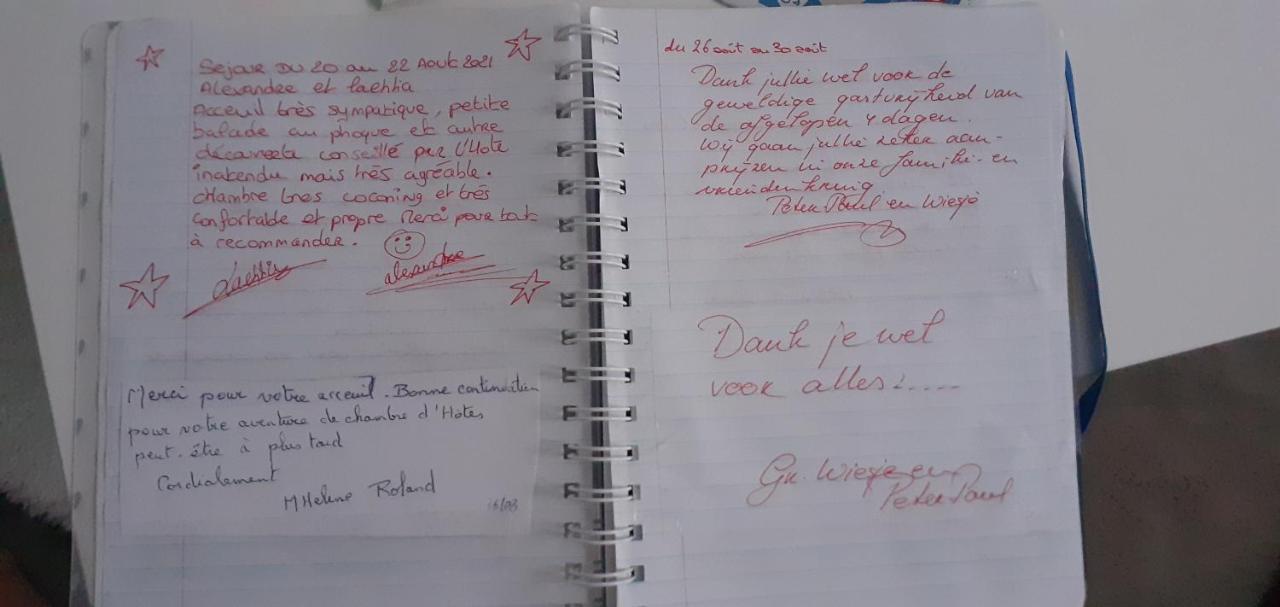 Sejour du 20 au 22 Aout 2021
Alexandre et Laetitia
Acceuil très sympatique, petite
balade au phoque et autre
conseillé par l'Hote
inatendu mais très agréable.
chambre tres cocaning et très
confortable et propre Merci pour tout
à recommander.
Laetitia alexandre
Merci pour votre acceuil. Bonne continuation
pour votre aventure de chambre d'Hotes
peut-être à plus tard
Cordialement
M Helene Roland
15/08
du 26 août au 30 août
Dank jullie wel voor de
geweldige gastvrijheid van
de afgelopen 4 dagen.
Wij gaan jullie zeker aan-
prijzen in onze familie- en
vriendenkring.
Peter Paul en Wiesje
Dank je wel
voor alles!.....
Gr. Wiesje en
Peter Paul